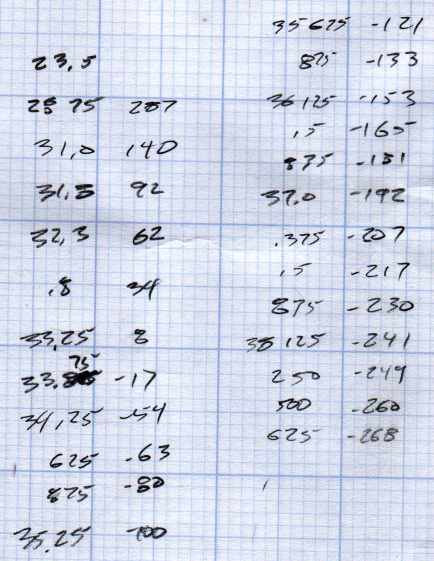 23.5
28 75 207
31,0 140
31,5 92
32,3 62
,8 34
33,25 8
75
33. -17
34,25 -54
625 -63
875 -80
35,25 -100
35 625 -121
875 -133
36,125 -153
,5 -165
875 -181
37.0 -192
.375 -207
,5 -217
875 -230
38 125 -241
250 -249
500 -260
625 -268